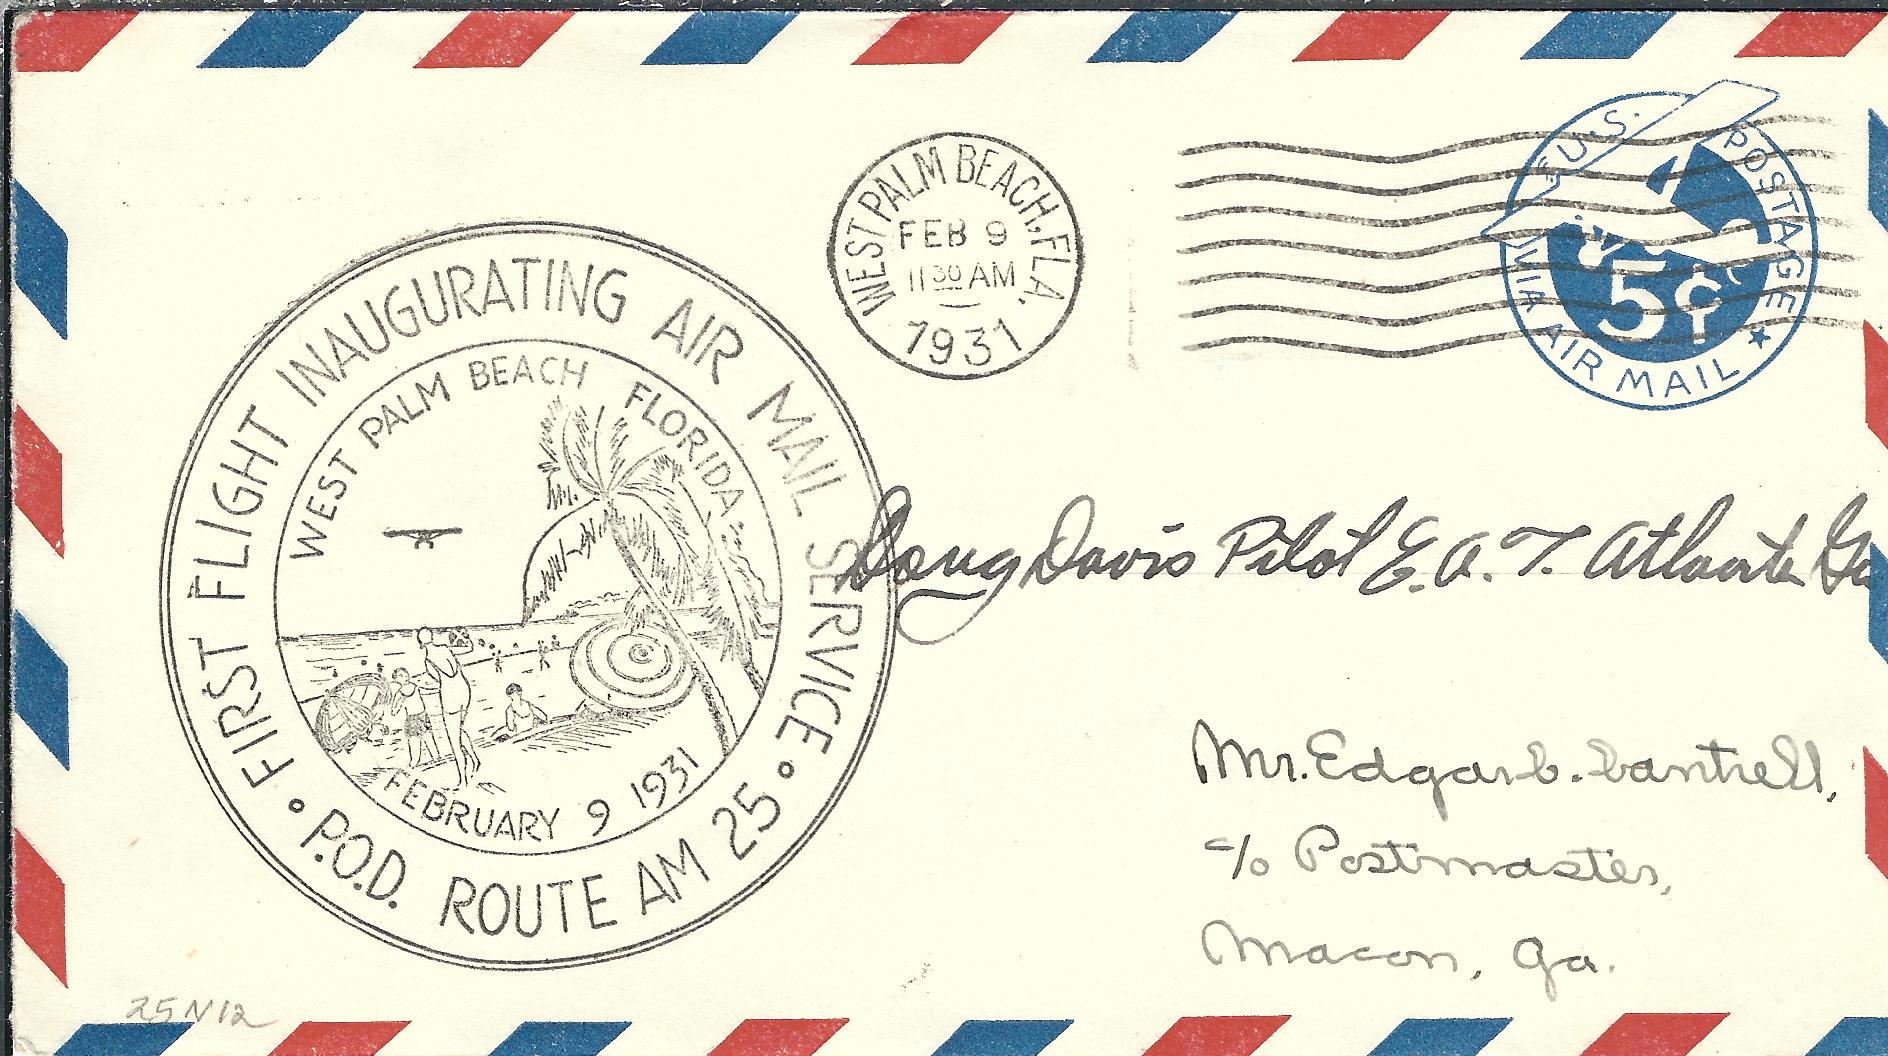 U.S. POSTAGE
5¢
VIA AIR MAIL
WEST PALM BEACH, FLA.
FEB 9
11 30 AM
1931
FIRST FLIGHT INAUGURATING AIR MAIL SERVICE
WEST PALM BEACH FLORIDA
FEBRUARY 9 1931
P.O.D. ROUTE AM 25
Doug Davis Pilot E.A.T. Atlanta Ga
Mr. Edgar C. Cantrell,
c/o Postmaster,
Macon, Ga.
25N12